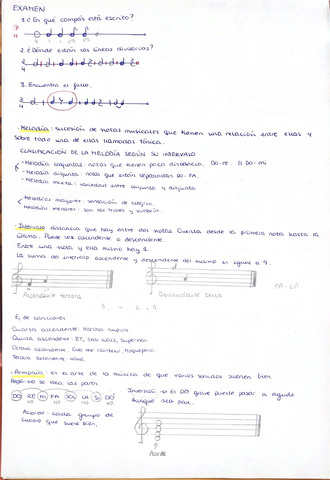 EXAMEN
1. ¿En qué compás está escrito?
2. ¿Dónde están las líneas divisorias?
3. Encuentra el fallo.
· Melodía: sucesión de notas musicales que tienen una relación entre ellas y
sobre todo una de ellas llamada tónica.
CLASIFICACIÓN DE LA MELODÍA SEGÚN SU INTERVALO
- Melodía conjunta: notas que tienen poca distancia. DO-RE DO-MI
- Melodía disjunta: notas que están separadas DO-FA.
- Melodía mixta: variedad entre conjunta y disjunta
- Melodías mayores: sensación de alegría.
- Melodías menores: son las tristes y sombría.
· Intervalo: distancia que hay entre dos notas. Cuenta desde la primera nota hasta la
última. Puede ser ascendente o descendente.
Entre una nota y ella misma hay 1.
La suma de intervalo ascendente y descendente del mismo es igual a 9.
Ascendente tercera
Descendente sexta
3 6 9
Ej de canciones:
Cuarta ascendente: Marcha nupcial
Quinta ascendente: ET, Star Wars, Superman
Octava ascendente:
Tercera ascendente:
· Armonía: es el arte de la música de que varios sonidos suenen bien
Regla: no se toca las pares
DO RE MI FA SOL LA SI DO
NO NO NO NO
Acorde: cada grupo de
cuatro que suene bien.
Inversión → el DO grave puede pasar a agudo
Aunque sea par.
Acorde